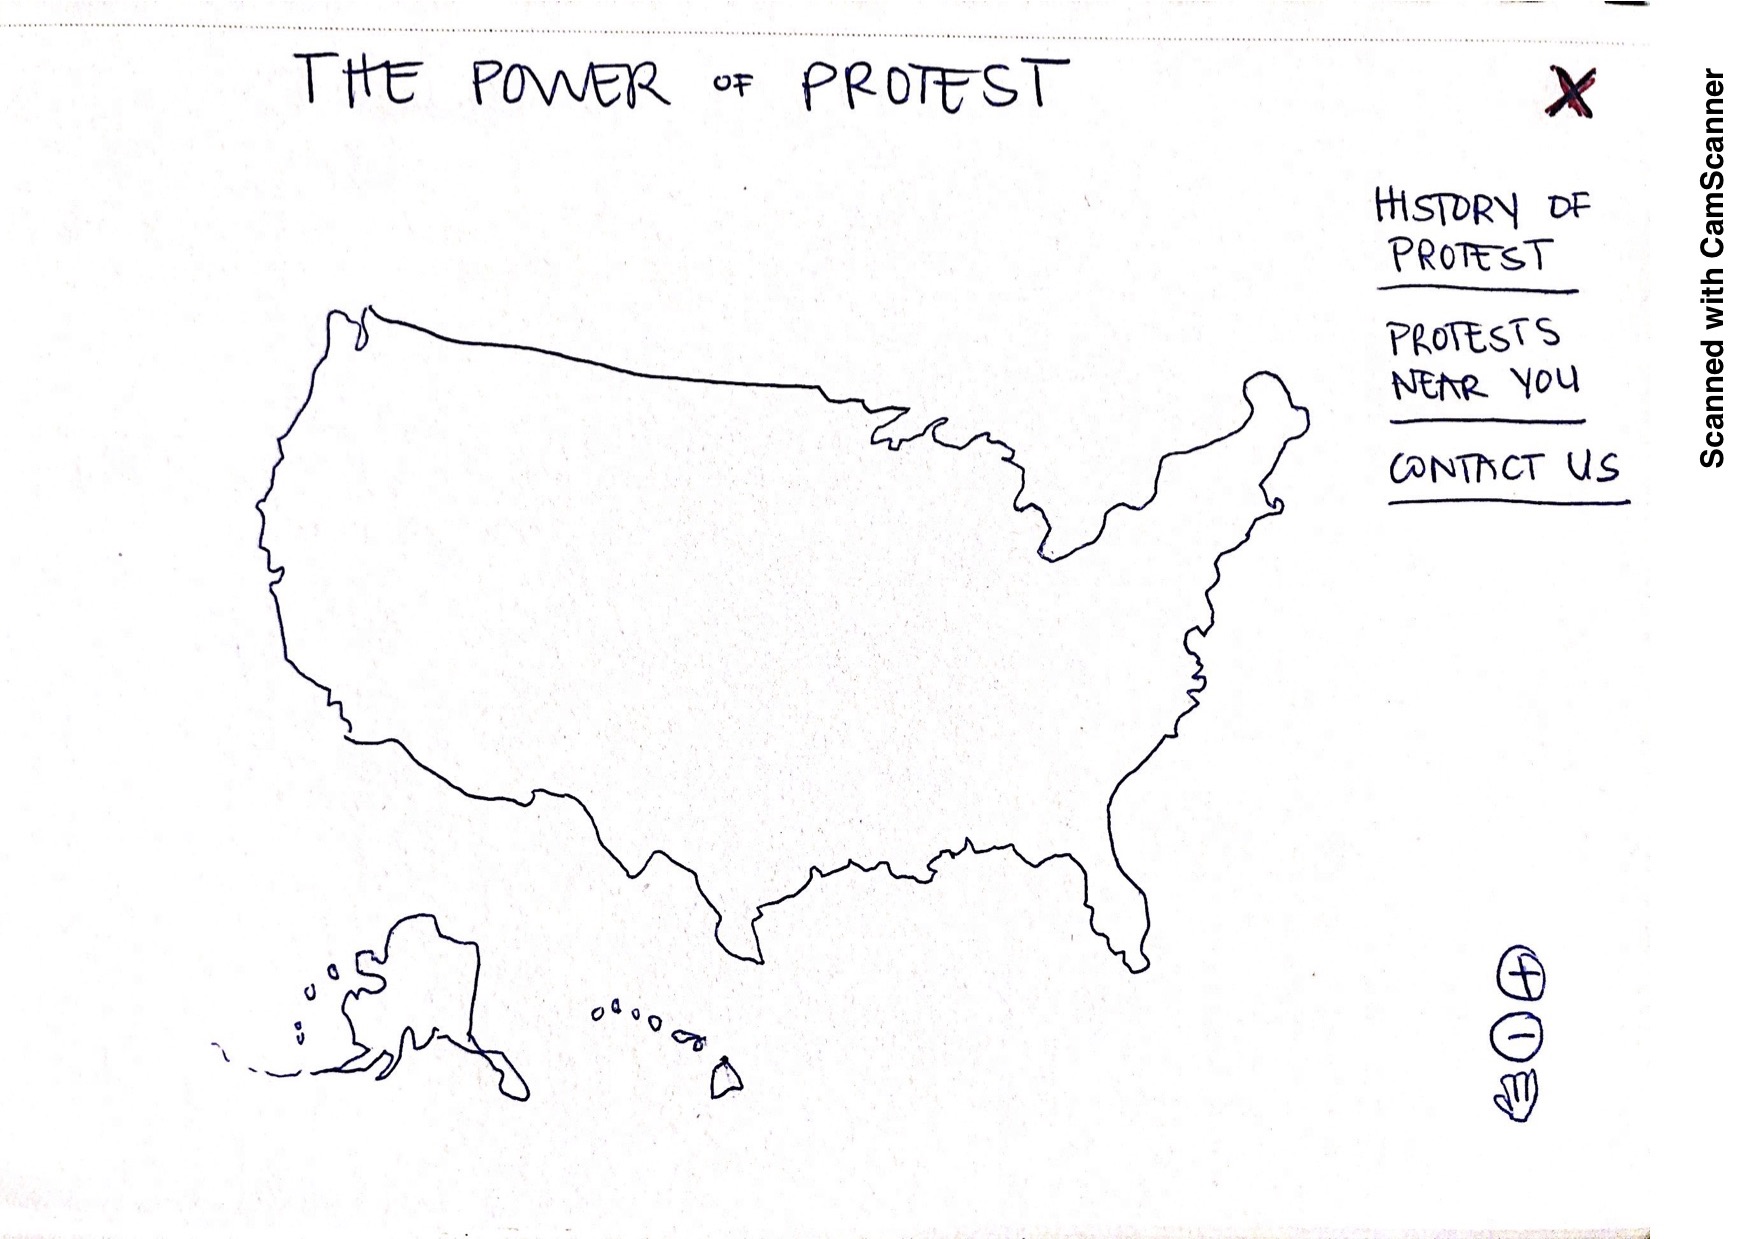 THE POWER OF PROTEST
X
HISTORY OF
PROTEST
PROTESTS
NEAR YOU
CONTACT US
Scanned with CamScanner